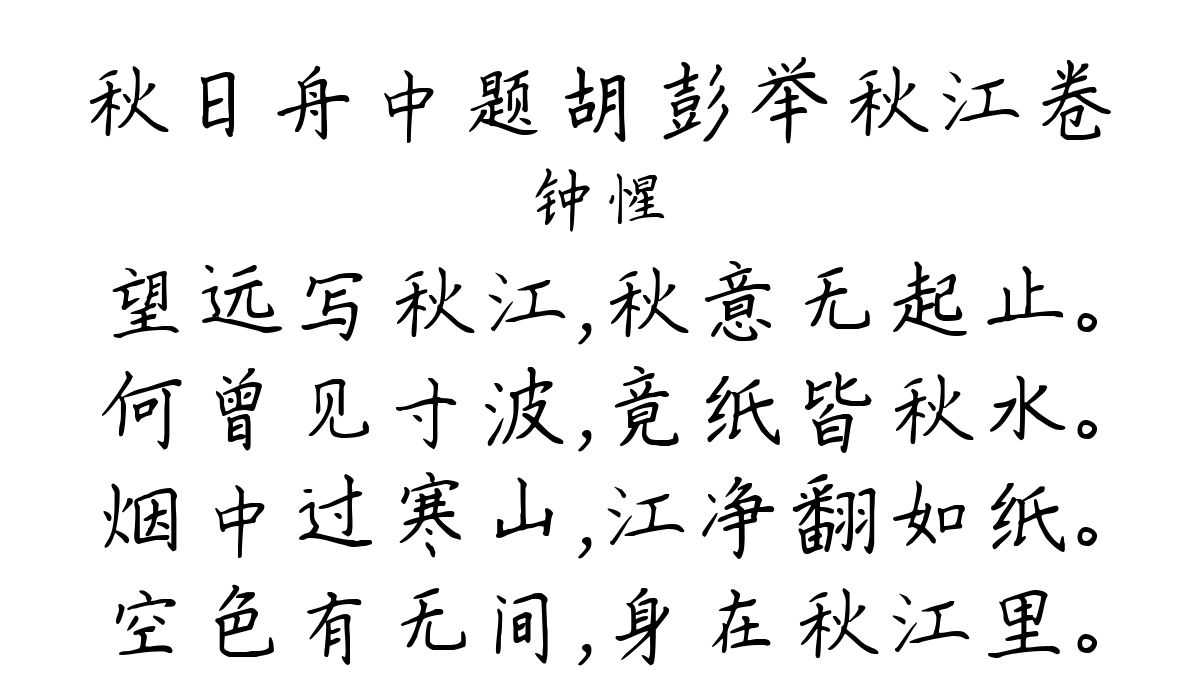 秋日舟中题胡彭举秋江卷
钟惺
望远写秋江,秋意无起止。
何曾见寸波,竟纸皆秋水。
烟中过寒山,江净翻如纸。
空色有无间,身在秋江里。